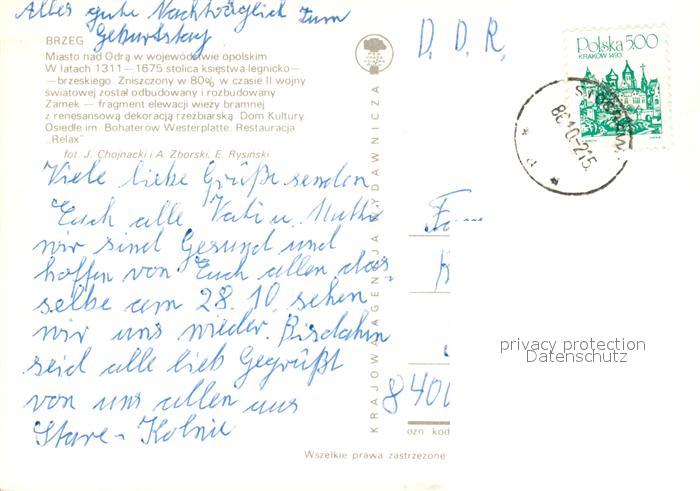 Alles gute Nachträglich zum
Geburtstag
BRZEG
Miasto nad Odrą w województwie opolskim.
W latach 1311—1675 stolica księstwa legnicko—
—brzeskiego. Zniszczony w 80% w czasie II wojny
światowej został odbudowany i rozbudowany
Zamek — fragment elewacji wieży bramnej
z renesansową dekoracją rzeźbiarską. Dom Kultury.
Osiedle im. Bohaterów Westerplatte. Restauracja
„Relax"
fot. J. Chojnacki i A. Zborski, E. Rysiński
Viele liebe Grüße senden
Euch alle Vati u. Mutti
wir sind Gesund und
hoffen von Euch allen das
selbe am 28.10. sehen
wir uns wieder. Bisdahin
seid alle lieb Gegrüßt
von uns allen aus
Stare-Kolnie
KRAJOWA AGENCJA WYDAWNICZA
D.D.R.
Polska 5.00
KRAKÓW 1493
Fam
840
ozn kod
Wszelkie prawa zastrzeżone
privacy protection
Datenschutz